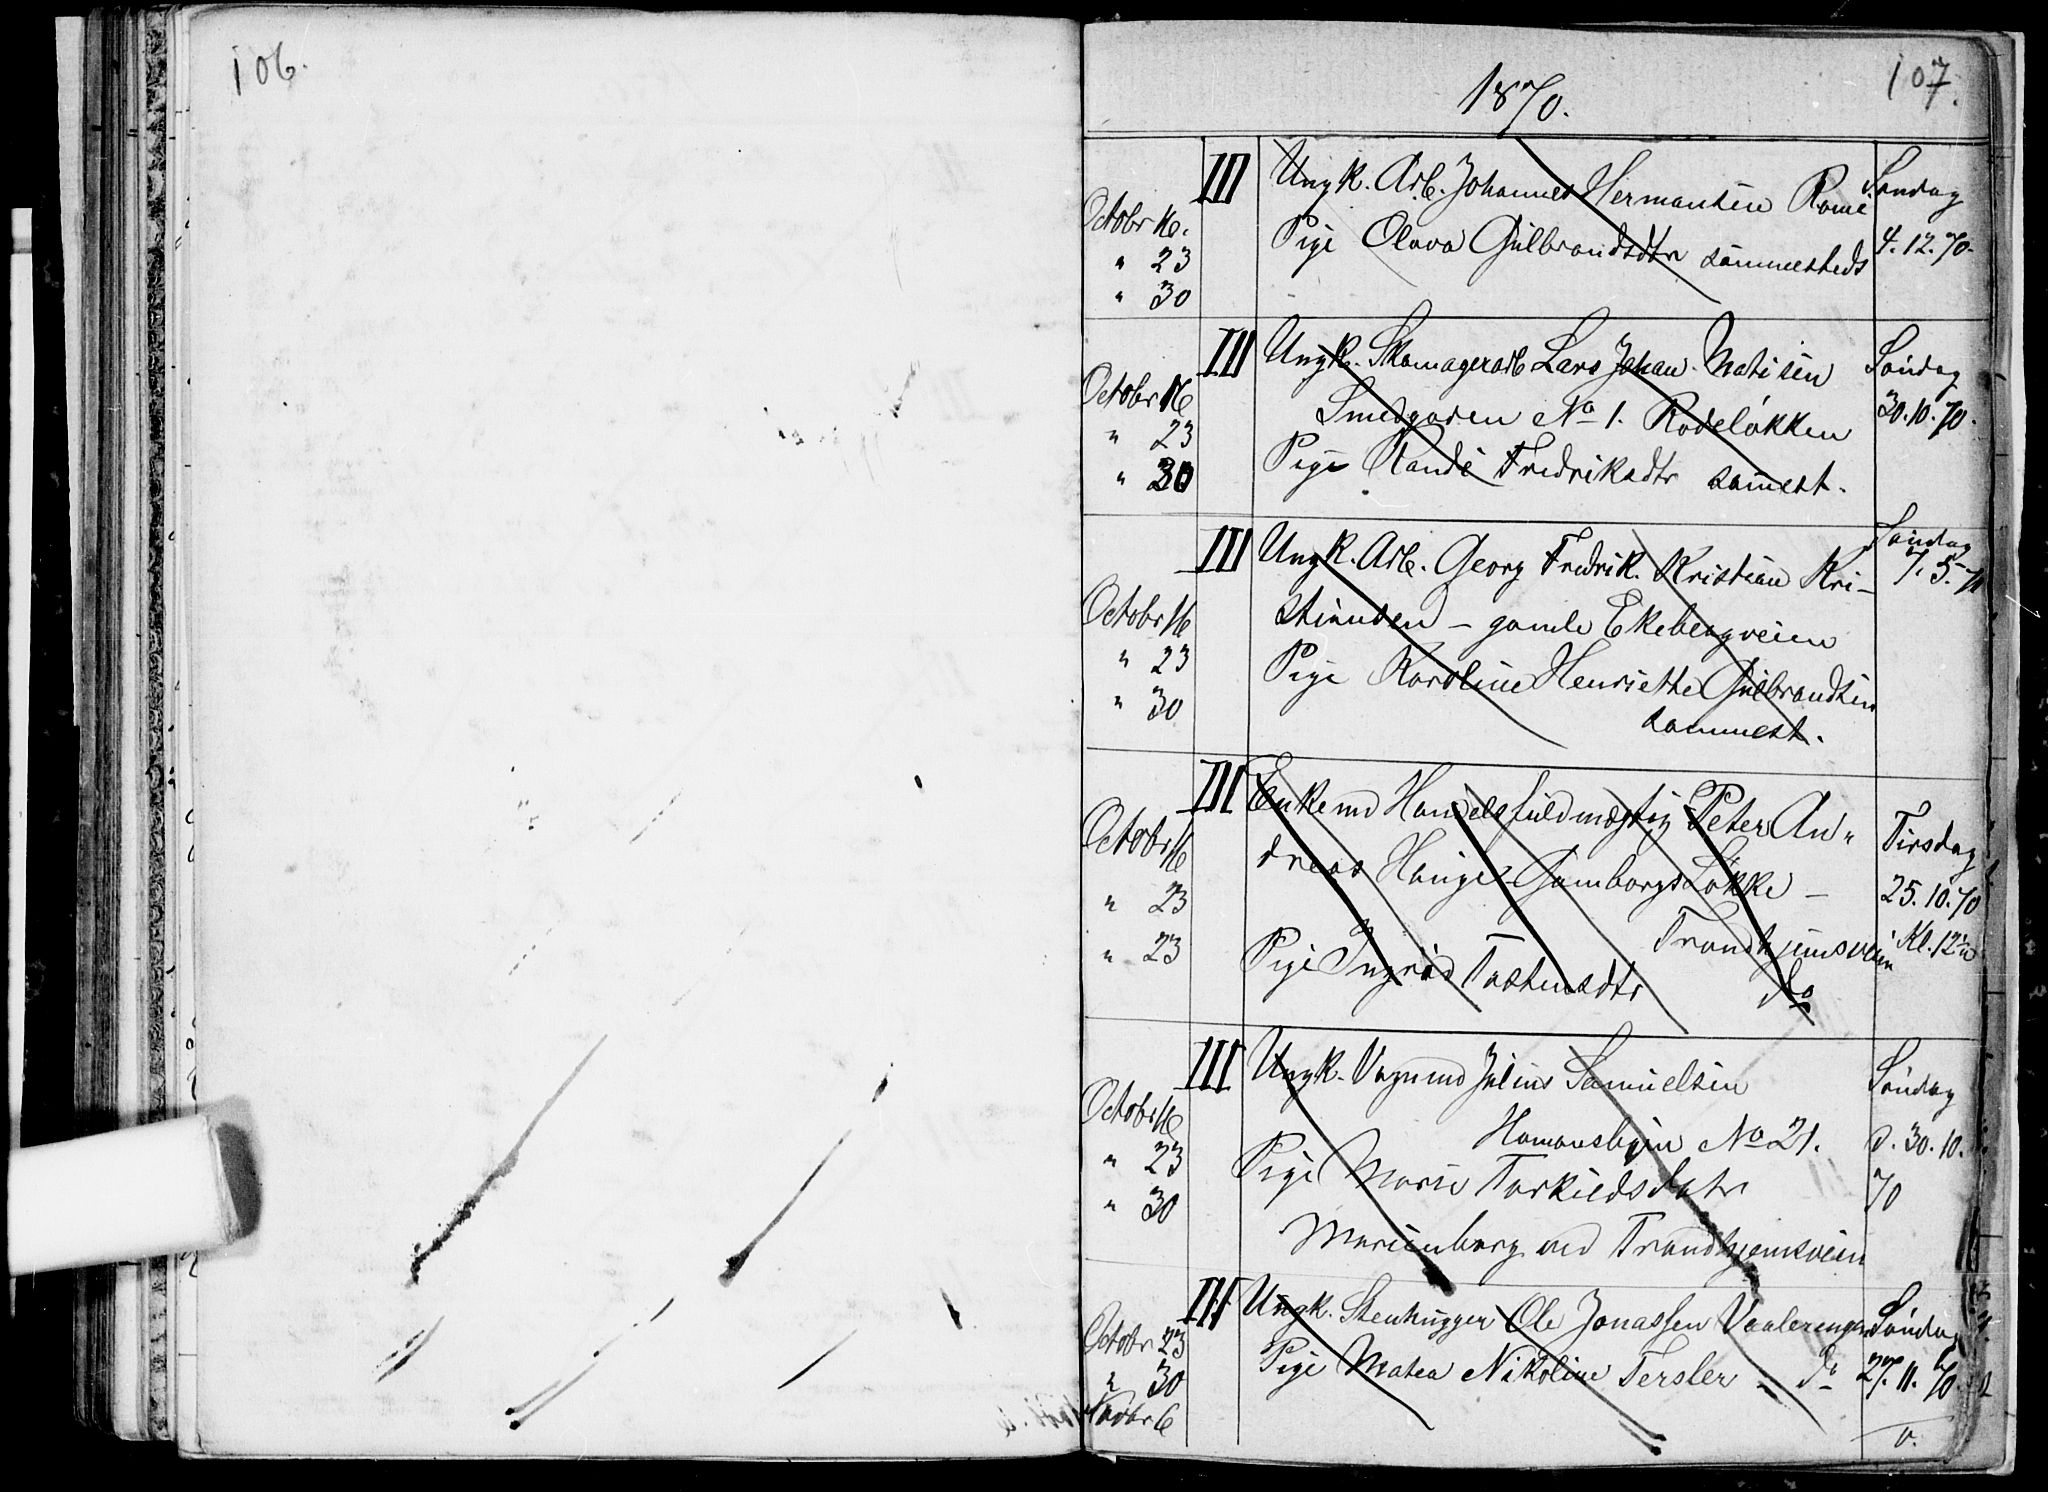 106.
107.
1870.
Octobr 16.
" 23
" 30
III
Ungk. Arb. Johannes Hermansen
Pige Olava Gulbrandsdtr sammesteds
Søndag
4.12.70.
Octobr 16
" 23
" 30
III
Ungk. Skomagerarb Lars Johan Matisen
Smedgaden No 1. Rodeløkken
Pige Randi Fredriksdtr sammest.
Søndag
30.10.70.
Octobr 16
" 23
" 30
III
Ungk. Arb. Georg Fredrik Kristian Kri-
stiansen - gamle Ekebergveien
Pige Karoline Henriette Gulbrandsen
sammest.
Søndag
7.5.71
Octobr 16
" 23
" 23
III
Enkemd Handelsfuldmægtig Peter An-
dreas Hauger Gamborgs Løkke -
Trondhjemsveien
Pige Ingrid Tostensdtr do
Tirsdag
25.10.70
Kl. 12½
Octobr 16
" 23
" 30
III
Ungk. Vognmd Julius Samuelsen
Homansbyen No 21.
Pige Marie Torkildsdatr
Marienborg ved Trondhjemsveien
Søndag
d. 30.10.
70
Octobr 23
" 30
Novbr 6
III
Ungk. Stenhugger Ole Jonassen Vaalerengen
Pige Matea Nikoline Fersler do
Søndag
27.11.70.